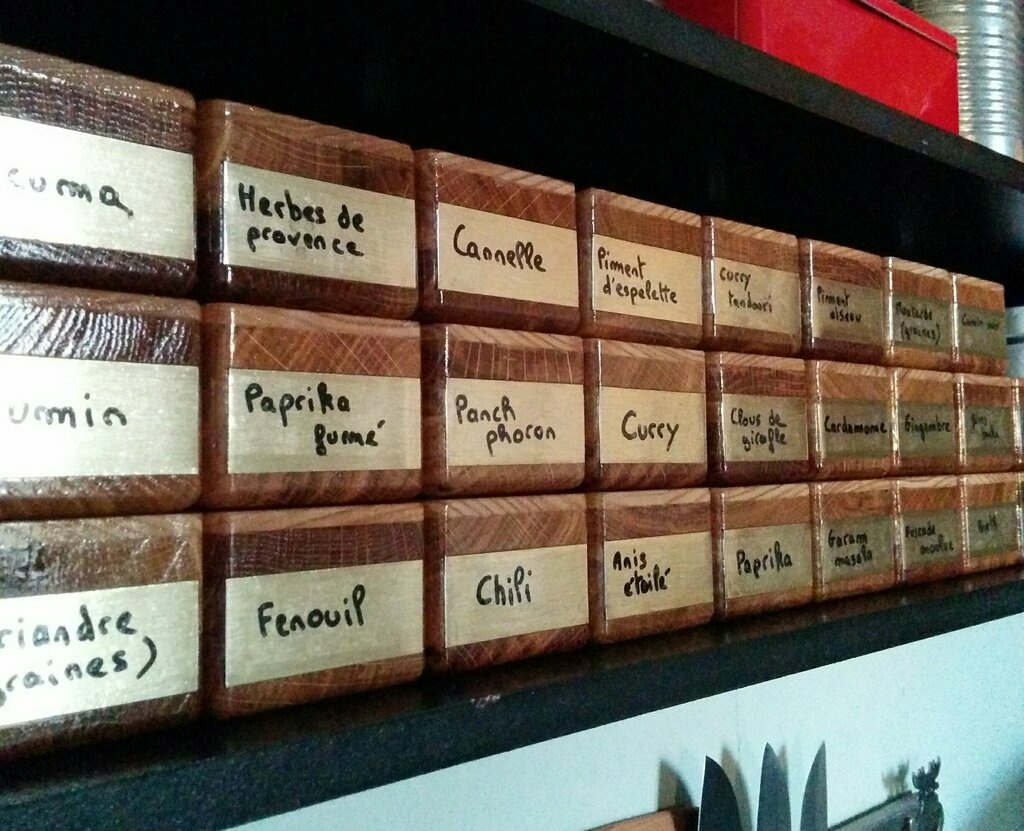 curma
Herbes de
provence
Cannelle
Piment
d'espelette
Curry
tandoori
Piment
oiseau
Moutarde
(graines)
Cumin
urmin
Paprika
fumé
Panch
phoron
Curry
Clous de
girofle
Cardamome
Gingembre
riandre
raines)
Fenouil
Chili
Anis
étoilé
Paprika
Garam
masala
Muscade
moulue